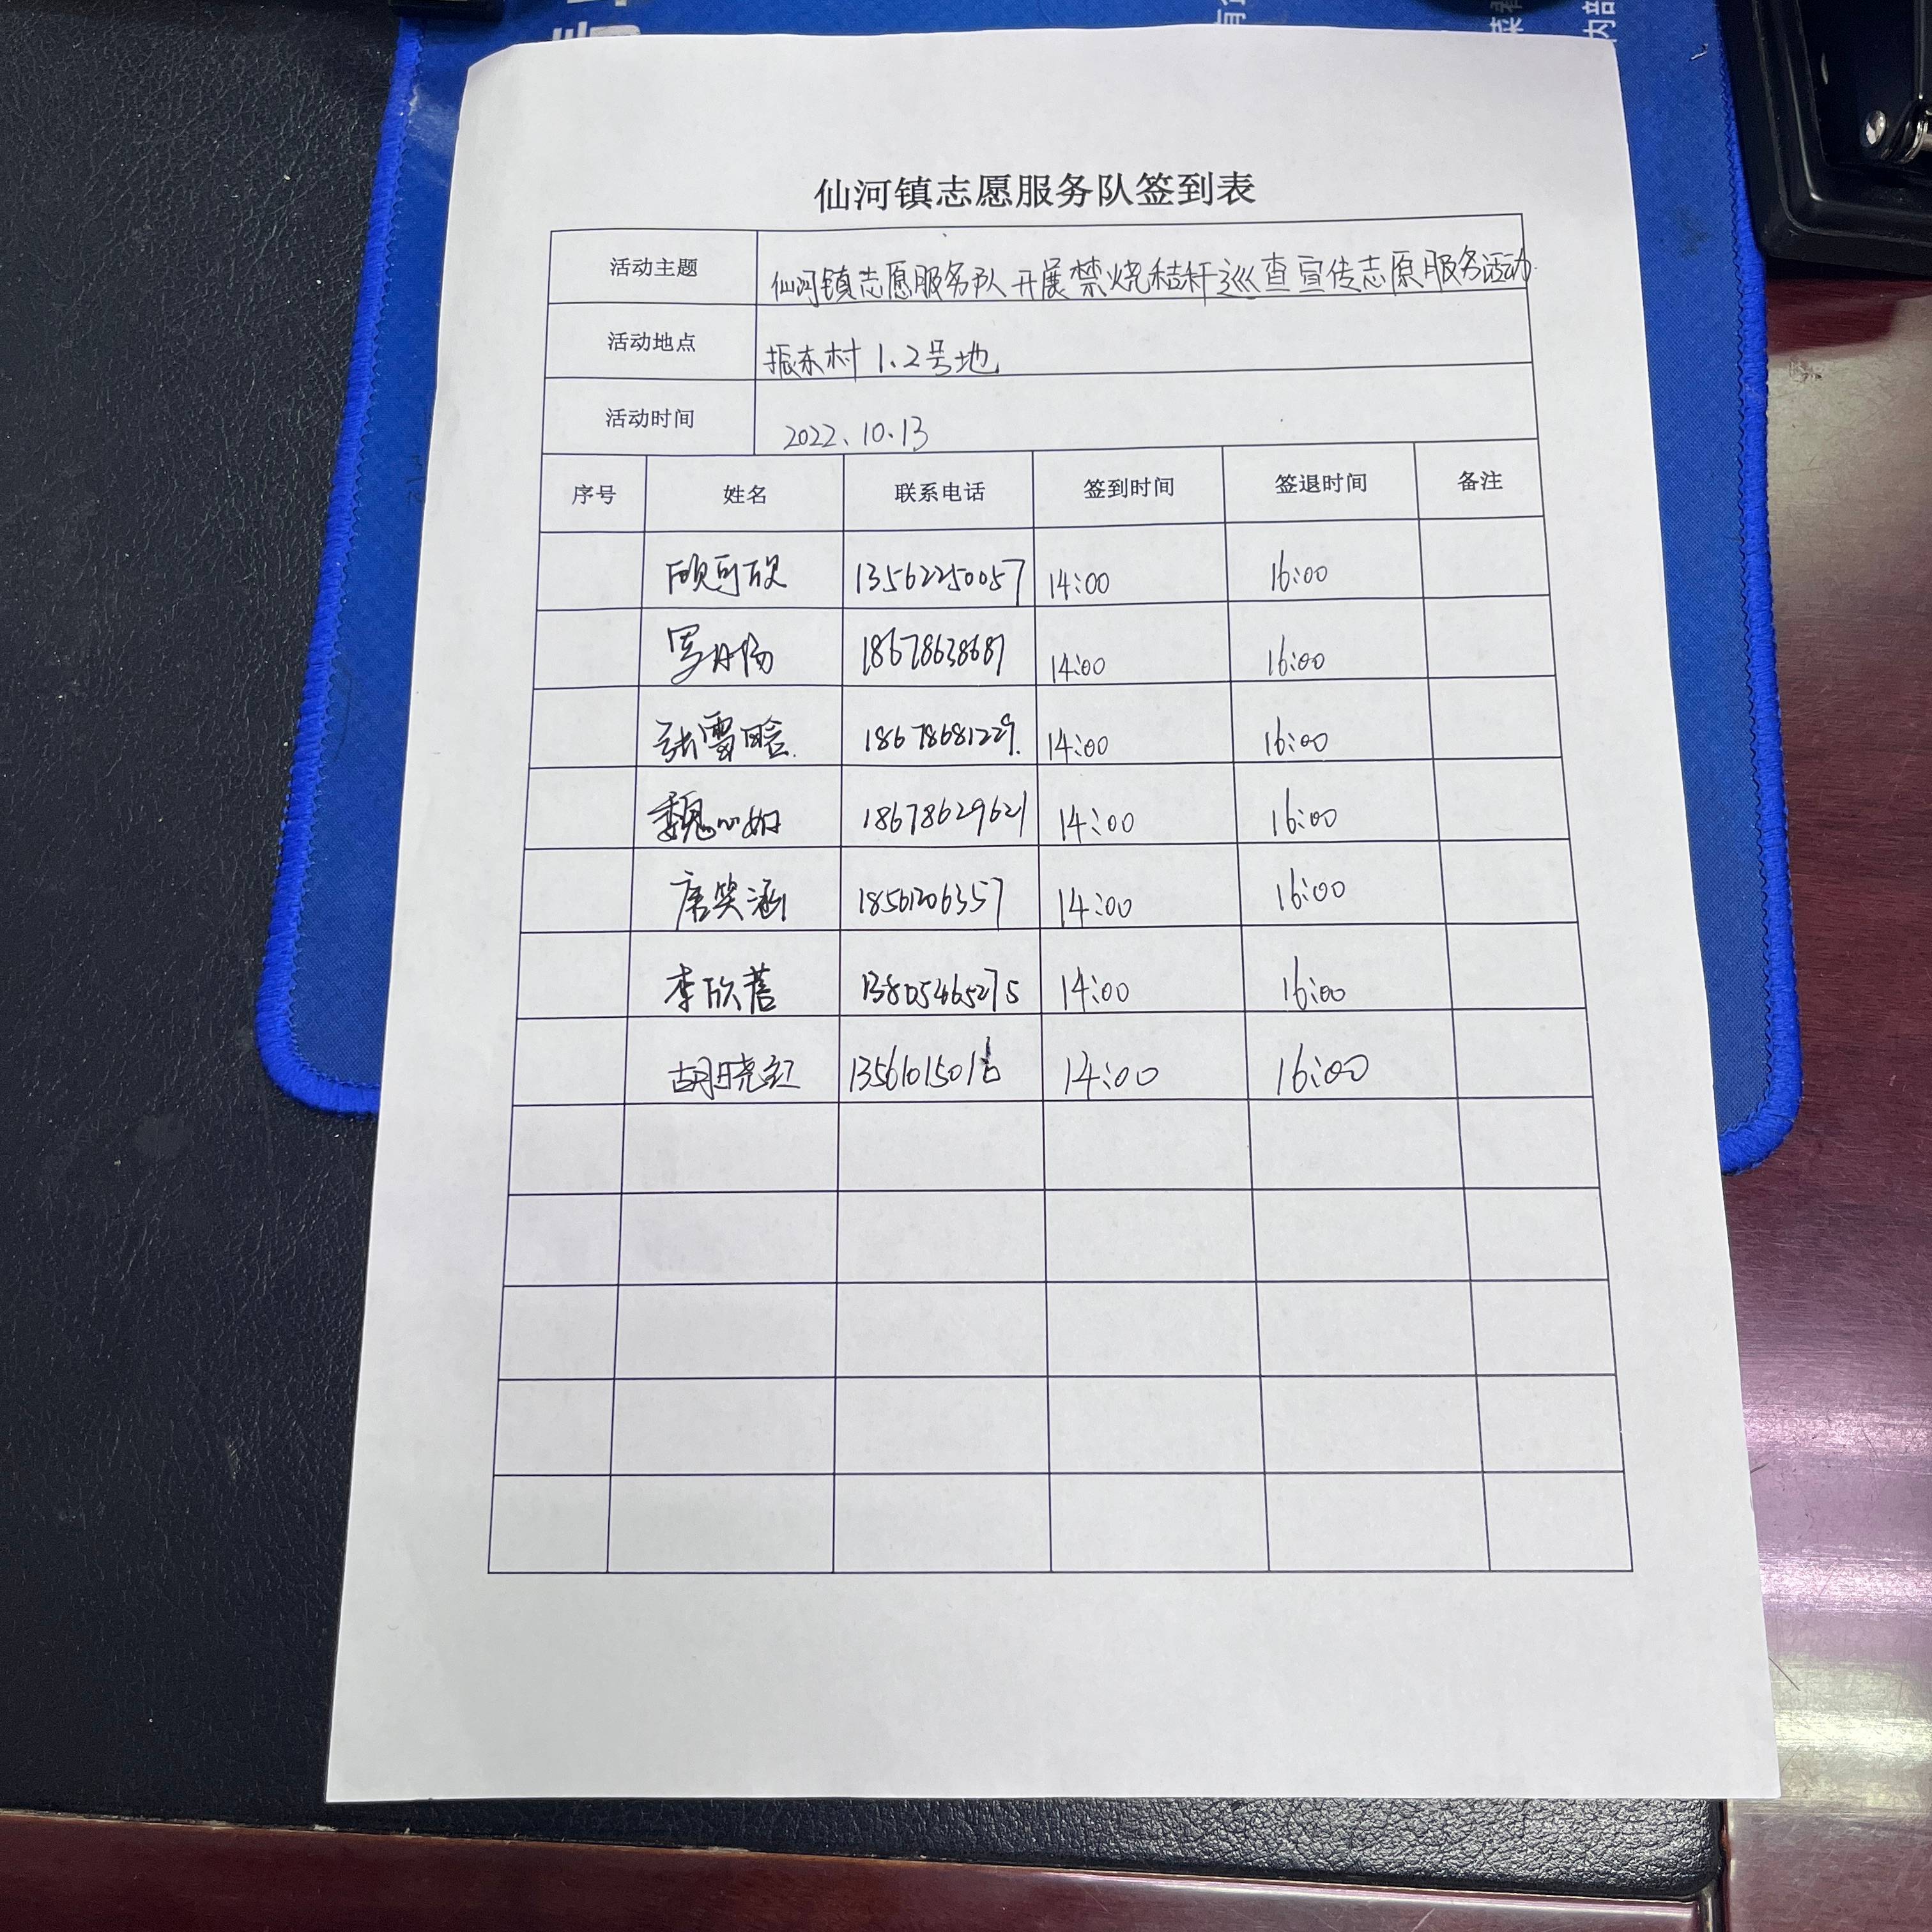 仙河镇志愿服务队签到表
活动主题 仙河镇志愿服务队开展禁烧秸秆巡查宣传志原服务活动
活动地点 振东村1、2号地
活动时间 2022、10.13
序号 姓名 联系电话 签到时间 签退时间 备注
13562250057 14:00 16:00
18678638687 14:00 16:00
张雪晗 18678681229 14:00 16:00
魏心如 18678629621 14:00 16:00
唐笑涵 18561206357 14:00 16:00
李欣蓓 13805465275 14:00 16:00
胡晓红 14:00 16:00